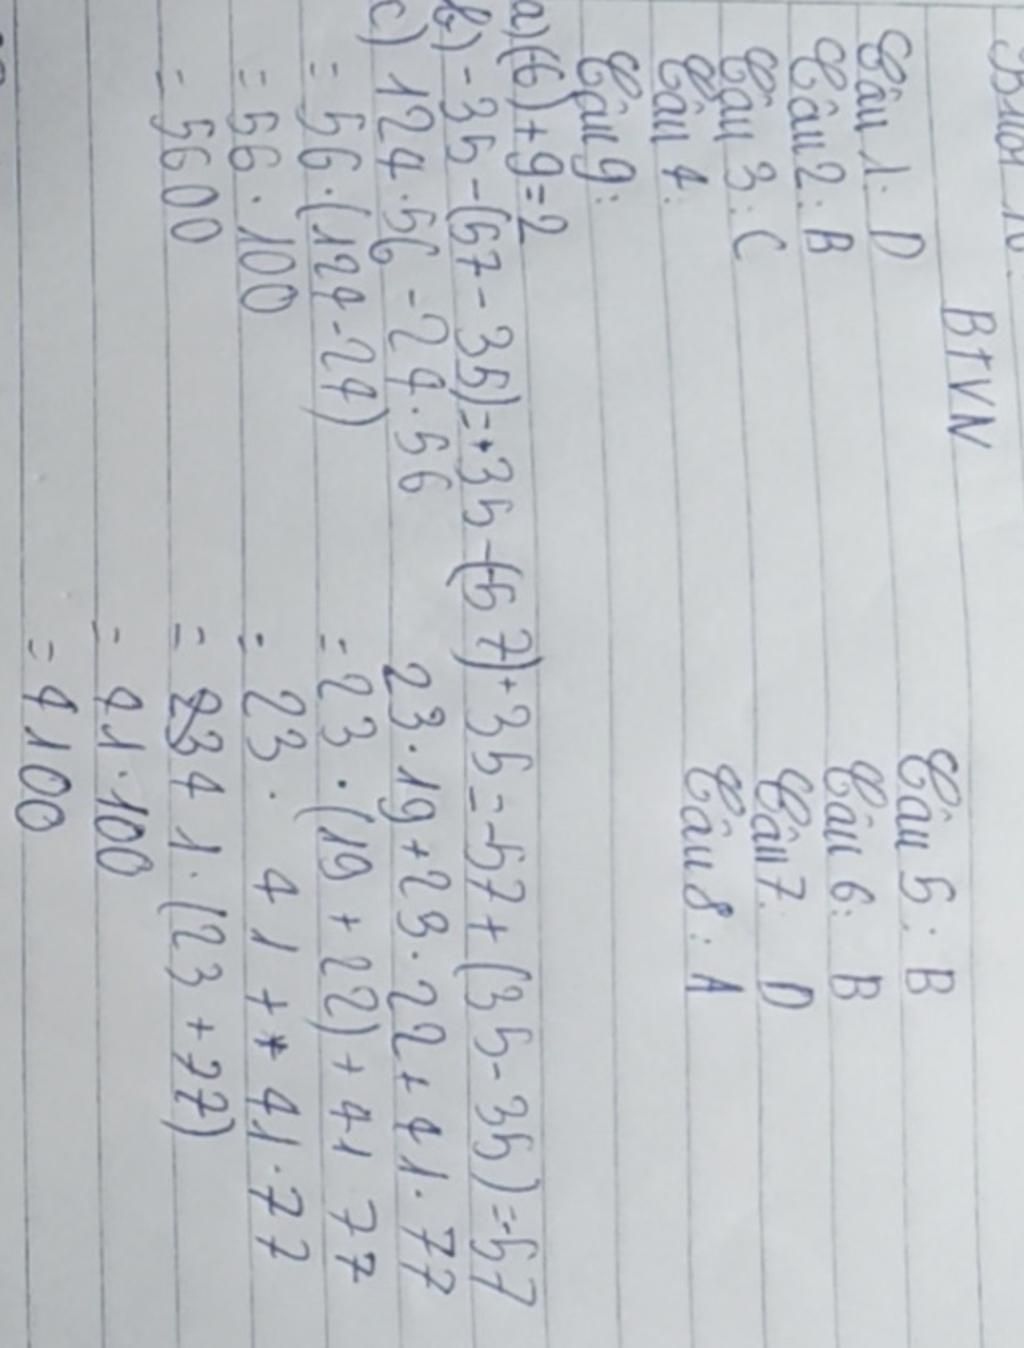 BTVN
Câu 1: D Câu 5: B
Câu 2: B Câu 6: B
Câu 3: C Câu 7: D
Câu 4: Câu 8: A
Câu 9:
a) (-6)+9=2
b) -35-(57-35)=-35-(57)+35=-57+(35-35)=-57
c) 124.56-24.56 23.19+23.22+41.77
= 56.(124-24) = 23.(19+22)+41 77
= 56.100 = 23. 41+41.77
= 5600 = 41.(23+77)
= 41.100
= 4100